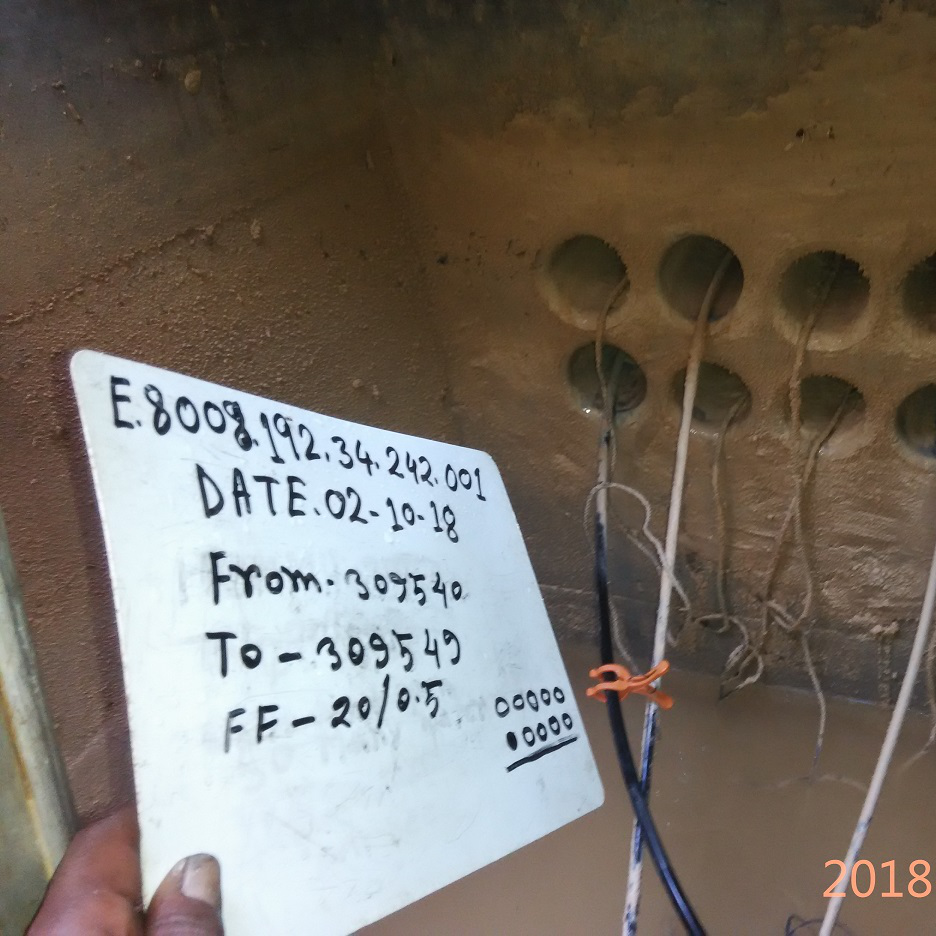 E.8008.192.34.242.001
DATE.02-10-18
From. 309540
To - 309549
FF - 20/0.5
2018